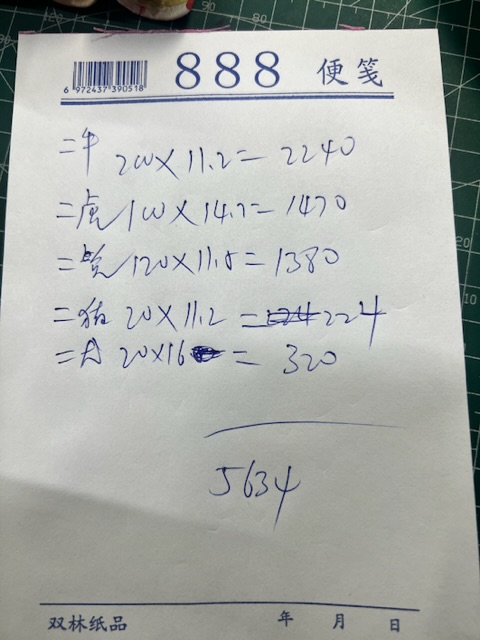 888 便笺
6 972437 390518
二牛 200×11.2=2240
二虎 100×14.7=1470
二兔 120×11.5=1380
二猪 20×11.2=224
二大 20×16=320
5634
双林纸品 年 月 日